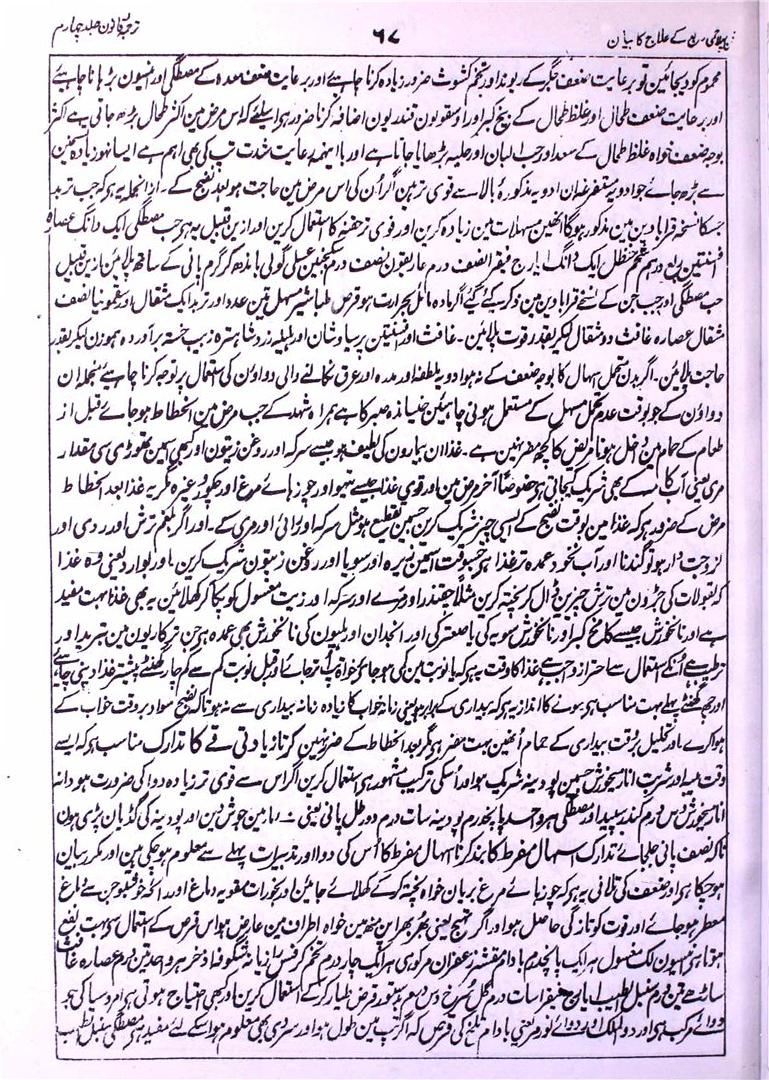 ترجمہ قانون جلد چہارم
۶۷
علاج کا بیان
محموم کو دیجائین تو برعایت ضعف جگر کے ریوند اور تخم کشوث ضرور زیادہ کرنا چاہئے اور برعایت ضعف معدہ کے مصطگی اور انیسون بڑہانا چاہئے
اور برعایت ضعف طحال اور غلظ طحال کے بیخ کبر اور اسقولوقندریون اضافہ کرنا ضرور ہوا اسلئے کہ اس مرض مین اکثر طحال بڑھ جاتی ہے اکثر
بوجہ ضعف خواہ غلظ طحال کے سعد اور حب البان اور حلبہ بڑھایا جاتا ہے اور با اینہمہ رعایت شدت تپ کی بھی اہم ہے ایسا نہو زیادہ تسخین
سے بڑھ جائے جو ادویہ مستفرغہ ان ادویہ مذکورہ بالا سے قوی تر ہین اگر ان کی اس مرض مین حاجت ہو بعد نضج کے ۔ از انجملہ یہ ہو کہ حب تربد
جسکا نسخہ قرابادین مین مذکور ہوگا انھین مسہلات مین زیادہ کرین اور قوی تر حقنہ کا استعمال کرین اور ازین قبیل یہ ہی حب مصطگی ایک دانگ عصارہ
افسنتین ربع درم شحم حنظل ایک دانگ ایارج فیقرا نصف درم غاریقون نصف درم سکنجبین عسلی گولی باندھ کر گرم پانی کے ساتھ پلائین ازین قبیل
حب مصطگی اور حب جن کے نسخے قرابادین مین ذکر کیے گئے اگر مادہ مائل بحرارت ہو قرص طباشیر مسہل تین عدد اور تربد ایک مثقال اور سقمونیا نصف
مثقال عصارہ غافث دو مثقال لیکر بقدر قوت پلائین ۔ غافث اور افسنتین پرسیاوشان اور ہلیلہ زرد شاہترہ زبیب خستہ برآوردہ ہموزن لیکر بقدر
حاجت پلائین ۔ اگر بدن متحمل اسہال کا بوجہ ضعف کے نہ ہو ادویہ ملطفہ اور مدرہ اور عرق نکالنے والی دواؤن کی استعمال پر توجہ کرنا چاہئے منجملہ ان
دواؤن کے جو بوقت عدم تحمل مسہل کے مستعمل ہونی چاہئین خیساندہ صبر کا ہے ہمراہ شہد کے جب مرض مین انحطاط ہوجائے قبل از
طعام کے حمام مین داخل ہونا مریض کا کچھ مضر نہین ہے ۔ غذا ان بیمارون کی لطیف ہو جیسے سرکہ اور روغن زیتون اور کبھی اسمین تھوڑی سی مقدار
مری یعنی آب کامہ کے بھی شریک کیجاتی ہی خصوصاً آخر مرض مین اور قوی غذا جیسے تیہو اور چوزہائے مرغ اور چکور وغیرہ مگر یہ غذا بعد انحطاط
مرض کے ضرور ہو کہ غذا مین بوقت نضج کے ایسی چیز شریک کرین جسمین تقطیع ہو مثل سرکہ اور رائی اور مری کے ۔ اور اگر بلغم ترش اور ردی اور
لزوجت دار ہو تو گندنا اور آب نخود عمدہ تر غذا ہو جسوقت اسمین زیرہ اور سویا اور روغن زیتون شریک کرین ۔ اور بوارد یعنی وہ غذا
کہ بقولات کی جڑون مین ترش چیزین ڈال کر پختہ کرین مثلاً چقندر اور مری اور سرکہ اور زیت مغسول کو پکا کر کھلائین یہ بھی غذا بہت مفید
ہے اور نانخورش جیسے کامخ کبر اور نانخورش میوہ کی یا صعتر کی اور انجدان اور لیمون کی نانخورش بھی عمدہ ہی جن ترکاریون مین تبرید اور
ترطیب ہے انکے استعمال سے احتراز واجب ہے غذا کا وقت یہ ہی کہ یا نوبت مین کمی ہو جائے خواہ تپ اتر جائے اور قبل نوبت کم سے کم چار گھنٹے پیشتر غذا دینی چاہئے
اور چھ گھنٹے پہلے بہت مناسب ہی سونے کا اندازہ یہ ہو کہ بیداری کے برابر ہو یعنی زمانہ خواب کا زیادہ زمانہ بیداری سے نہ ہو تاکہ نضج مواد بروقت خواب کے
ہوا کرے ۔ اور تحلیل بروقت بیداری کے حمام انھین بہت مضر ہی مگر بعد انحطاط کے ضرر نہین کرتا زیادتی قے کا تدارک مناسب ہو کہ ایسے
وقت میبہ اور شربت انار میخوش جسمین پودینہ شریک ہوا اور اسکی ترکیب مشہور ہی استعمال کرین اگر اس سے قوی تر زیادہ دوا کی ضرورت ہو دانہ
انار میخوش دس درم کندر سپید اور مصطگی ہر واحد پانچ درم پودینہ سات درم دو رطل پانی یعنی ۔ مین جوش دین اور پودینہ کی گڈیان پڑی ہون
تاکہ نصف پانی جل جائے تدارک اسہال مفرط کا بند کرنا اسہال مفرط کا اُس کی دوا اور تدبیرات پہلے سے معلوم ہو چکی ہین اور مکرر بیان
ہو چکا ہی اور ضعف کی تلافی یہ ہو کہ چوزہائے مرغ بریان خواہ پختہ کر کے کھلائے جائین اور بخورات مقویہ دماغ اور رائحہ خوشبو جن سے دماغ
معطر ہو جائے اور قوت کو تازگی حاصل ہوا اور اگر تہیج یعنی بھربھراہن منھ مین خواہ اطراف مین عارض ہو اس قرص کے استعمال سے بہت نفع
ہوتا ہی انیسون لک مغسول ہر ایک پانچدرم بادام مقشر زعفران مرکوہی ہر ایک چار درم تخم کرفس رازیانہ شگوفہ اذخر ہر واحد تین درم عصارہ غافث
ساڑھے تین درم سنبل الطیب ایارج فیقرا سات درم گل سرخ دس درم بدستور قرص طیار کر کے استعمال کرین اور کبھی احتیاج ہوتی ہی امروسیا کی جو
دوائے مرکب ہی اور دواء الملک اور دوائے نورمر یعنی بادام تلخ کی قرص کہ اگر تپ مین طول ہو اور سردی بھی معلوم ہو اسکے لئے مفید ہی مصطگی سنبل الطیب